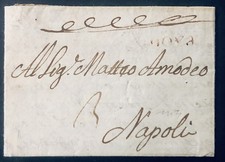 Al Sig.r Matteo Amodeo
Napoli